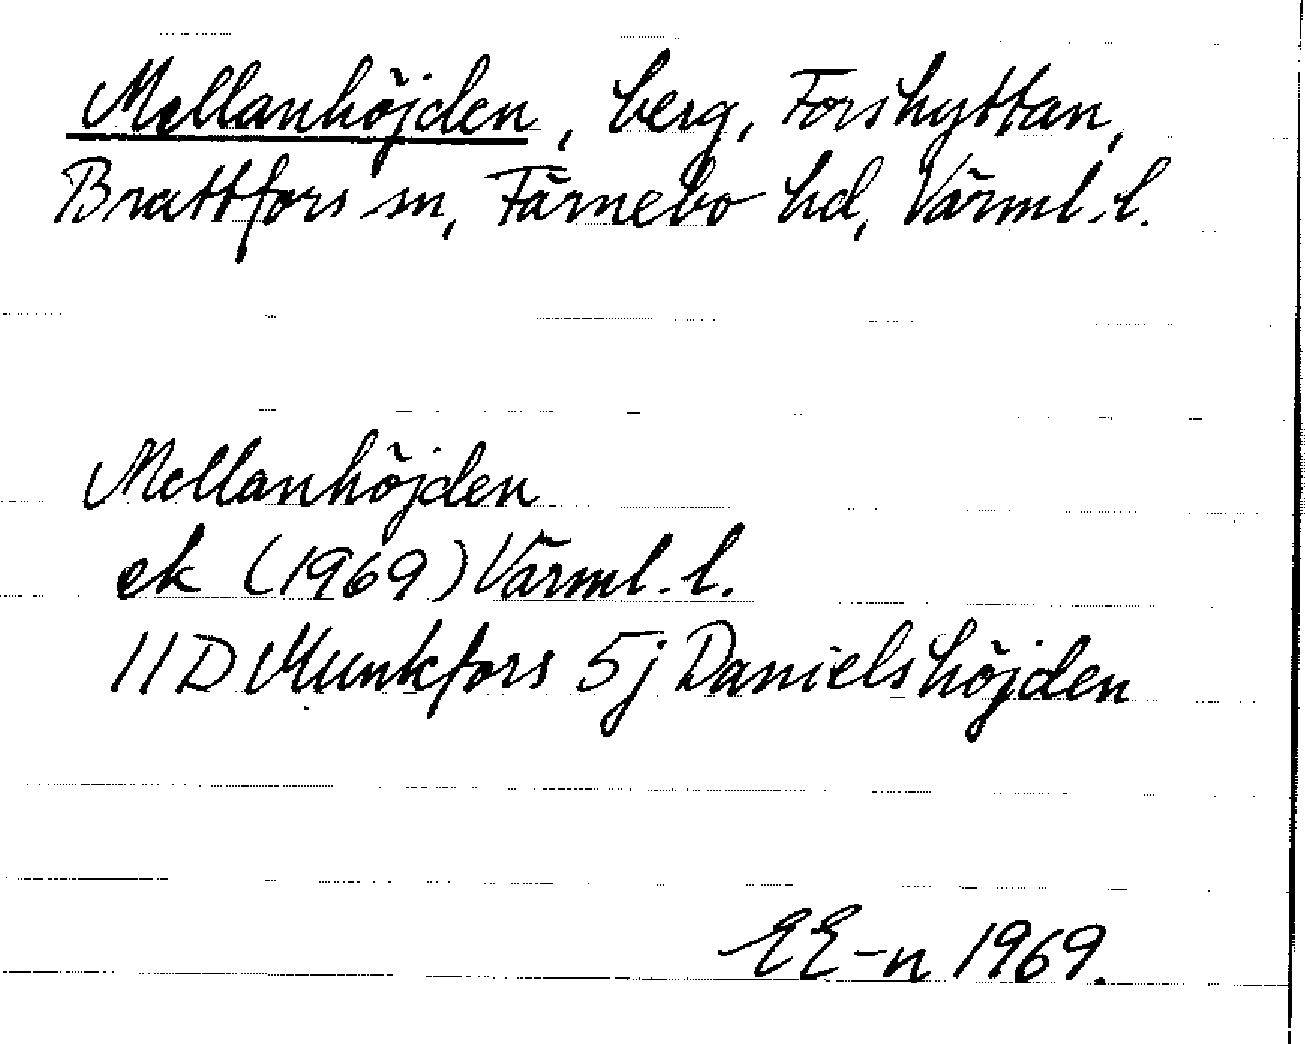 Mellanhöjden, berg, Forshyttan,
Brattfors sn, Färnebo hd, Värml. l.
Mellanhöjden
ek (1969) Värml. l.
11D Munkfors 5j Danielshöjden
EE-n 1969.